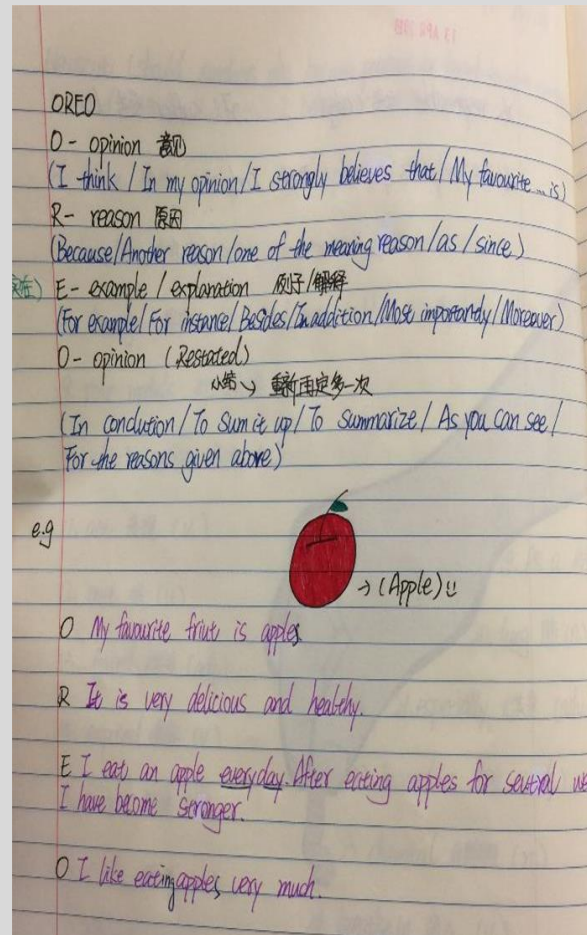 OREO
O - opinion 意见
(I think / In my opinion / I strongly believes that / My favourite ... is)
R - reason 原因
(Because / Another reason / one of the meaning reason / as / since)
E - example / explanation 例子 / 解释
(For example / For instance / Besides / In addition / Most importandy / Moreover)
O - opinion (Restated)
小结 → 重新再定多一次
(In condution / To sum it up / To summarize / As you can see /
For the reasons given above)
e.g
→ (Apple)
O My favourite friut is apples
R It is very delicious and healthy.
E I eat an apple everyday. After eating apples for seutral we
I have become stronger.
O I like eating apples very much.